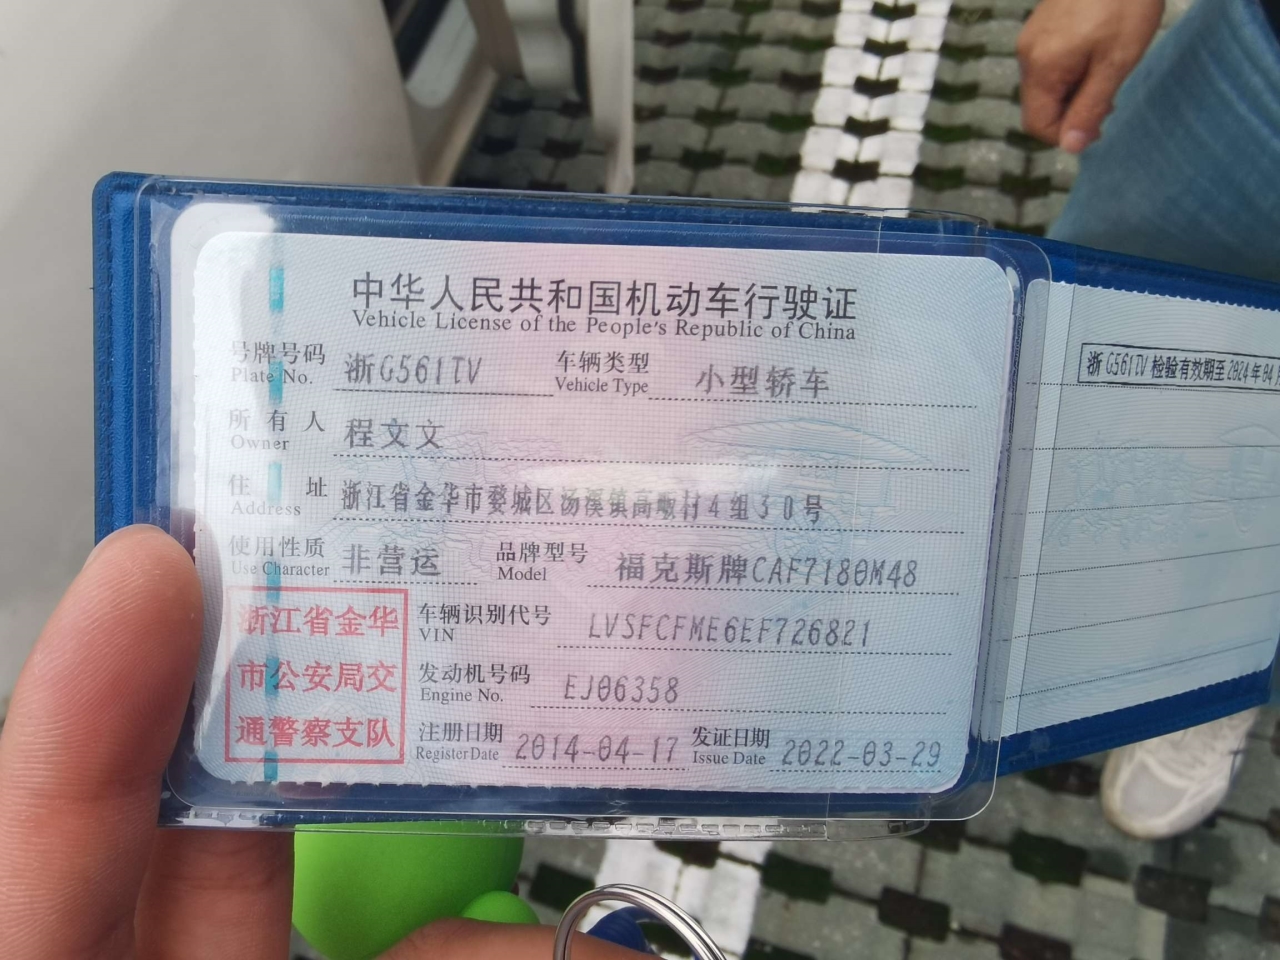 中华人民共和国机动车行驶证
Vehicle License of the People's Republic of China
号牌号码 浙G561TV 车辆类型 小型轿车
Plate No. Vehicle Type
所有人 程文文
Owner
住址 浙江省金华市婺城区汤溪镇高村4组30号
Address
使用性质 非营运 品牌型号 福克斯牌CAF7180M48
Use Character Model
浙江省金华 车辆识别代号 LVSFCFME6EF726821
VIN
市公安局交 发动机号码 EJ06358
Engine No.
通警察支队 注册日期 2014-04-17 发证日期 2022-03-29
Register Date Issue Date
浙G561TV 检验有效期至2024年04